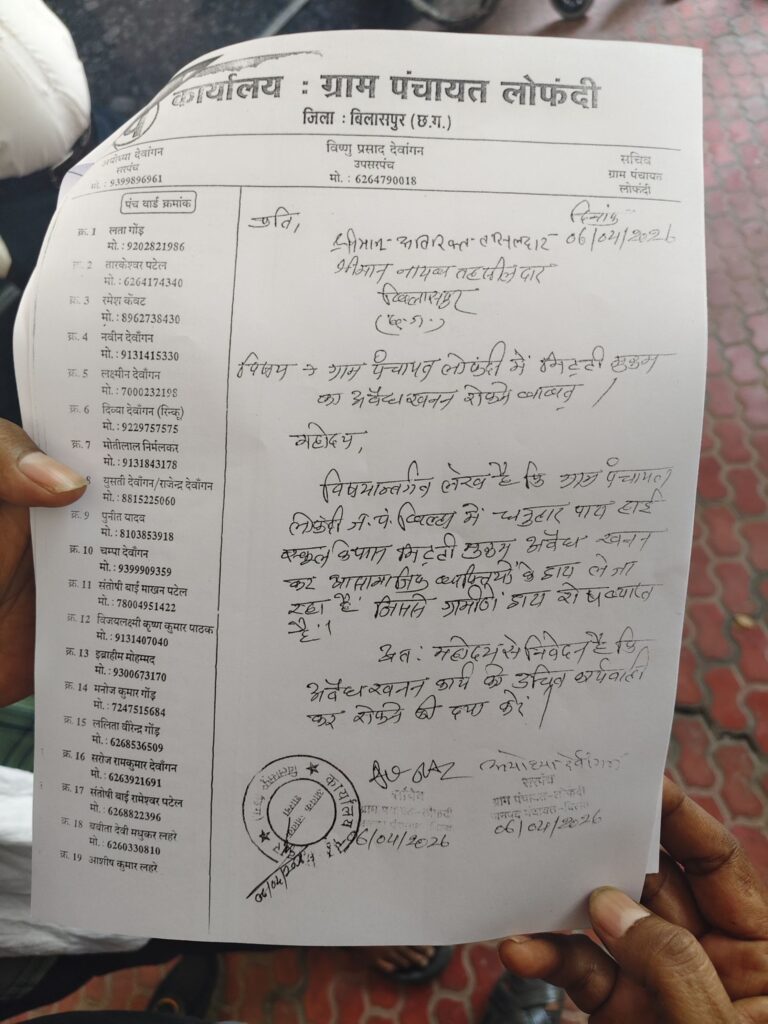 कार्यालय : ग्राम पंचायत लोफंदी
जिला : बिलासपुर (छ.ग.)
अयोध्या देवांगन
सरपंच
मो. : 9399896961
विष्णु प्रसाद देवांगन
उपसरपंच
मो. : 6264790018
सचिव
ग्राम पंचायत
लोफंदी
पंच वार्ड क्रमांक
क्र. 1 लता गोंड़
मो. : 9202821986
क्र. 2 तारकेश्वर पटेल
मो. : 6264174340
क्र. 3 रमेश केंवट
मो. : 8962738430
क्र. 4 नवीन देवाँगन
मो. : 9131415330
क्र. 5 लक्ष्मीन देवाँगन
मो. : 7000232198
क्र. 6 दिव्या देवाँगन (रिन्कू)
मो. : 9229757575
क्र. 7 मोतीलाल निर्मलकर
मो. : 9131843178
8 युसती देवाँगन/राजेन्द्र देवाँगन
मो. : 8815225060
क्र. 9 पुनीत यादव
मो. : 8103853918
क्र. 10 चम्पा देवाँगन
मो. : 9399909359
क्र. 11 संतोषी बाई माखन पटेल
मो. : 78004951422
क्र. 12 विजयलक्ष्मी कृष्ण कुमार पाठक
मो. : 9131407040
क्र. 13 इब्राहीम मोहम्मद
मो. : 9300673170
क्र. 14 मनोज कुमार गोंड़
मो. : 7247515684
क्र. 15 ललिता वीरेन्द्र गोंड़
मो. : 6268536509
क्र. 16 सरोज रामकुमार देवाँगन
मो. : 6263921691
क्र. 17 संतोषी बाई रामेश्वर पटेल
मो. : 6268822396
क्र. 18 बबीता देवी मधुकर लहरे
मो. : 6260330810
क्र. 19 आशीष कुमार लहरे
प्रति,
दिनांक
06/04/2026
श्रीमान अतिरिक्त तहसीलदार
श्रीमान नायब तहसीलदार
बिलासपुर
(छ.ग.)
विषय → ग्राम पंचायत लोफंदी में मिट्टी मुरूम
का अवैध खनन रोकने बाबत् /
महोदय,
विषयान्तर्गत लेख है कि ग्राम पंचायत
लोफंदी ज.पं. बिल्हा में पास हाई
स्कूल के पास मिट्टी मुरूम अवैध खनन
कर आसामाजिक व्यक्तियों के द्वारा ले जा
रहा है जिससे ग्रामीणों द्वारा रोष व्याप्त
है।
अतः महोदय से निवेदन है कि
अवैध खनन कार्य को उचित कार्यवाही
कर रोकने की दया करें /
सचिव
ग्राम पंचायत-लोफंदी
06/04/2026
अयोध्या देवांगन
सरपंच
ग्राम पंचायत-लोफंदी
जनपद पंचायत-बिल्हा
06/04/2026
कार्यालय